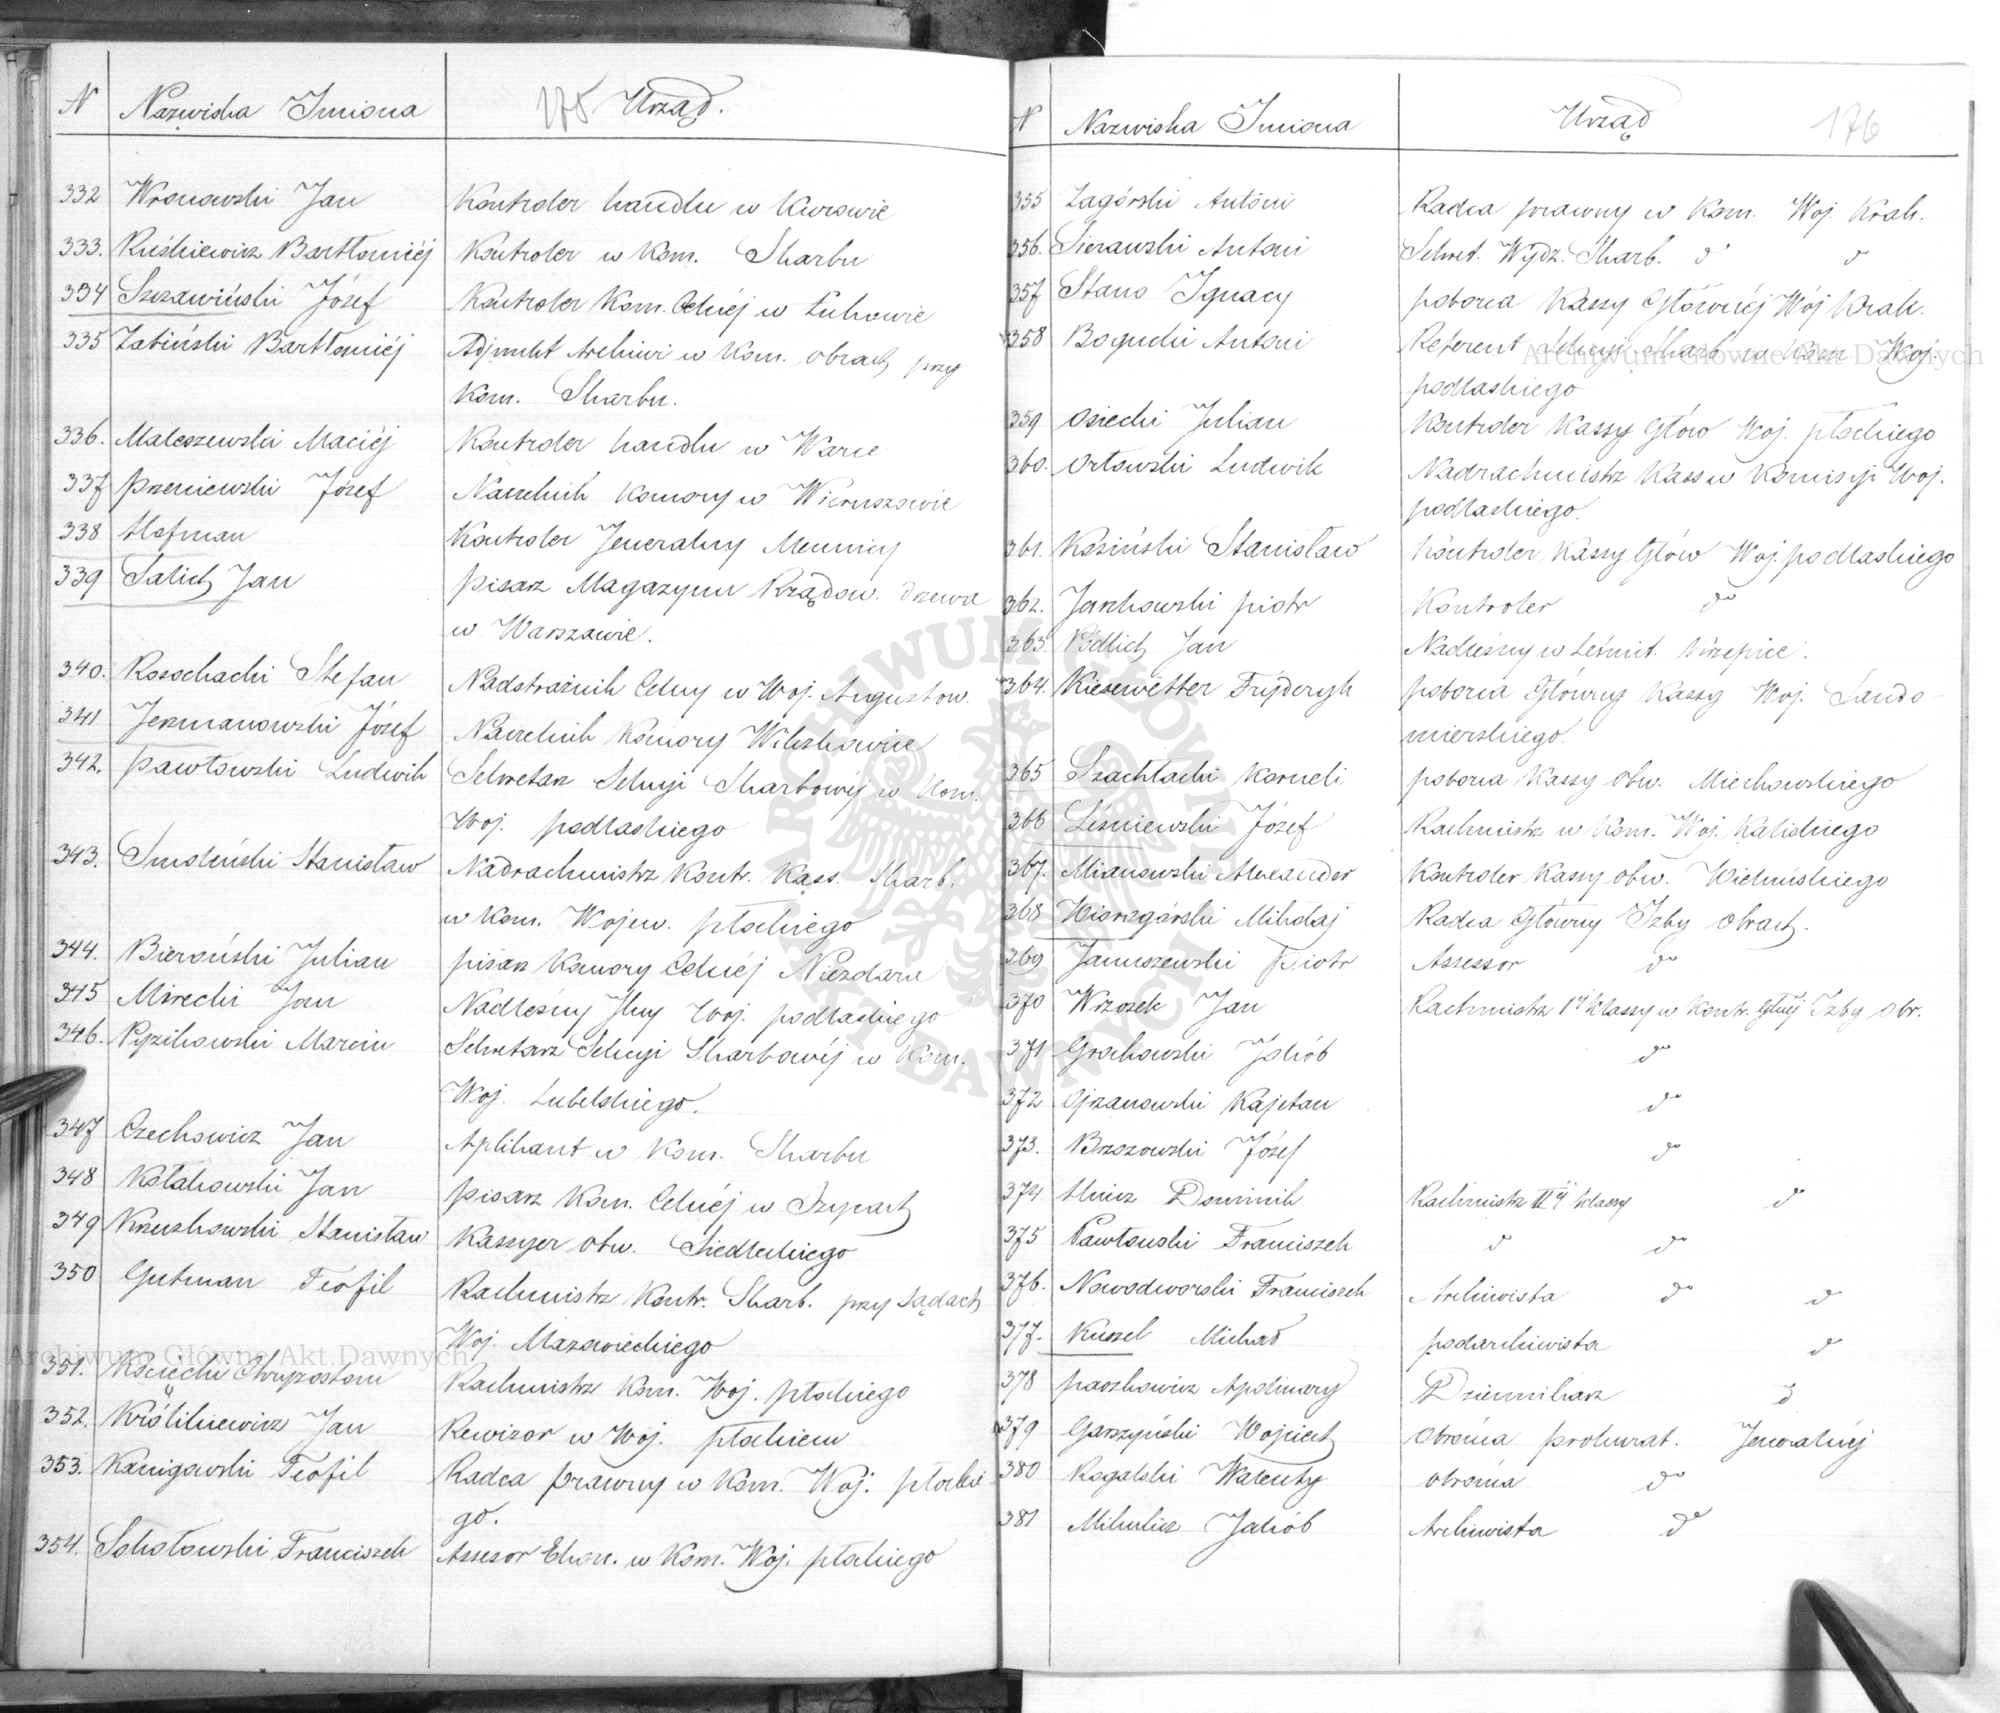 N Nazwiska Imiona 175 Urząd.
332 Wronowski Jan Kontroler handlu w Kurowie
333. Ruśkiewicz Bartłomiéj Kontroler w Kom. Skarbu
334 Szczawiński Józef Kontroler Kom. Celnéj w Łukowie
335 Żabiński Bartłomiéj Adjunkt Archiwi w Kom. obrach przy
Kom. Skarbu.
336. Maleszewski Maciéj Kontroler handlu w Warce
337 Przeniewski Józef Naczelnik Komory w Wieruszowie
338 Hofman Kontroler Jeneralny Mennicy
339 Salich Jan pisarz Magazynu Rządow. drzewa
w Warszawie.
340. Rosochacki Stefan Nadstrażnik Celny w Woj. Augustow.
341 Jermanowski Józef Naczelnik Komory Wilczkowice
342. pawłowski Ludwik Sekretarz Sekcyi Skarbowéj w Kom.
Woj. podlaskiego
343. Smoleński Stanisław Nadrachmistrz Kontr. Kass. Skarb.
w Kom. Wojew. płockiego
344. Bieroński Julian pisarz Komory Celnéj Niezdara
345 Mirecki Jan Nadleśny Jlny Woj. podlaskiego
346. Pyzikowski Marcin Sekretarz Sekcyi Skarbowéj w Kom.
Woj. Lubelskiego.
347 Czechowicz Jan Aplikant w Kom. Skarbu
348 Kołakowski Jan pisarz Kom. Celnéj w Szycach
349 Kruszkowski Stanisław Kassyer obw. Siedleckiego
350 Gutman Teofil Rachmistrz Kontr. Skarb. przy Sądach
Woj. Mazowieckiego
351. Kosiecki Chryzostom Rachmistrz Kom. Woj. płockiego
352. Królikiewicz Jan Rewizor w Woj. płockiem
353. Kanigowski Teofil Radca prawny w Kom. Woj. płockie
go.
354. Sokołowski Franciszek Assesor Ekon. w Kom. Woj. płockiego
N Nazwiska Imiona Urząd 176
355 Zagórski Antoni Radca prawny w Kom. Woj. Krak.
356. Sierawski Antoni Sekret. Wydz. Skarb. do do
357 Stano Ignacy poborca Kassy Głównéj Wój Krak.
358 Bogucki Antoni Referent Sekcyi Skarb w Kom Woj.
podlaskiego
359 Osiecki Julian Kontroler Kassy Głów Woj. płockiego
360. Orłowski Ludwik Nadrachmistrz Kass w Komisyi Woj.
podlaskiego.
361. Kosiński Stanisław Kontroler Kassy Głów Woj. podlaskiego
362. Jarzkowski piotr Kontroler do
363. Pödlich Jan Nadleśny w Leśnict. Krzepice.
364. Kiesewetter Fryderyk poborca Główny Kassy Woj. Sando-
mierskiego.
365 Szachłacki Korneli poborca Kassy obw. Miechowskiego
366 Leśniewski Józef Rachmistrz w Kom. Woj. Kaliskiego
367. Mianowski Alexander Kontroler Kassy obw. Wieluńskiego
368 Wiszogórski Mikołaj Radca Główny Izby obrach.
369 Januszewski Piotr Assessor do
370 Wrzosek Jan Rachmistrz Iéj klassy w Kontr. Głnéj Izby obr.
371 Grochowski Jakób do
372 Ojrzanowski Kajetan do
373. Brzozowski Józef do
374 Hincz Dominik Rachmistrz IIéj klassy do
375 Pawłowski Franciszek do do
376. Nowodworski Franciszek Archiwista do do
377. Kuszel Michał podarchiwista do
378 paszkowicz Apolinary Dziennikarz do
379 Garszyński Wojciech obrońca prokurat. Jeneralnéj
380 Rogalski Walenty obrońca do
381 Mikulicz Jakób Archiwista do
Archiwum Główne Akt Dawnych
Archiwum Główne Akt Dawnych
ARCHIWUM GŁÓWNE AKT DAWNYCH